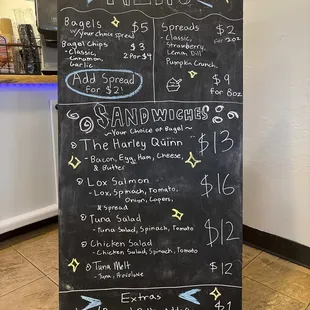 MENU
Bagels $5
w/Your choice spread
Bagel Chips $3
- Classic, 2 for $4
Cinnamon,
Garlic
Add Spread
for $2!
Spreads $2
- Classic, for 2oz
Strawberry,
Lemon, Dill
Pumpkin Crunch
$9
for 8oz
SANDWICHES
~Your Choice of Bagel~
The Harley Quinn $13
- Bacon, Egg, Ham, Cheese,
& Butter
Lox Salmon $16
- Lox, Spinach, Tomato,
Onion, Capers,
& Spread
Tuna Salad
- Tuna Salad, Spinach, Tomato
$12
Chicken Salad
- Chicken Salad, Spinach, Tomato
Tuna Melt $12
- Tuna, Provolone
Extras
$1